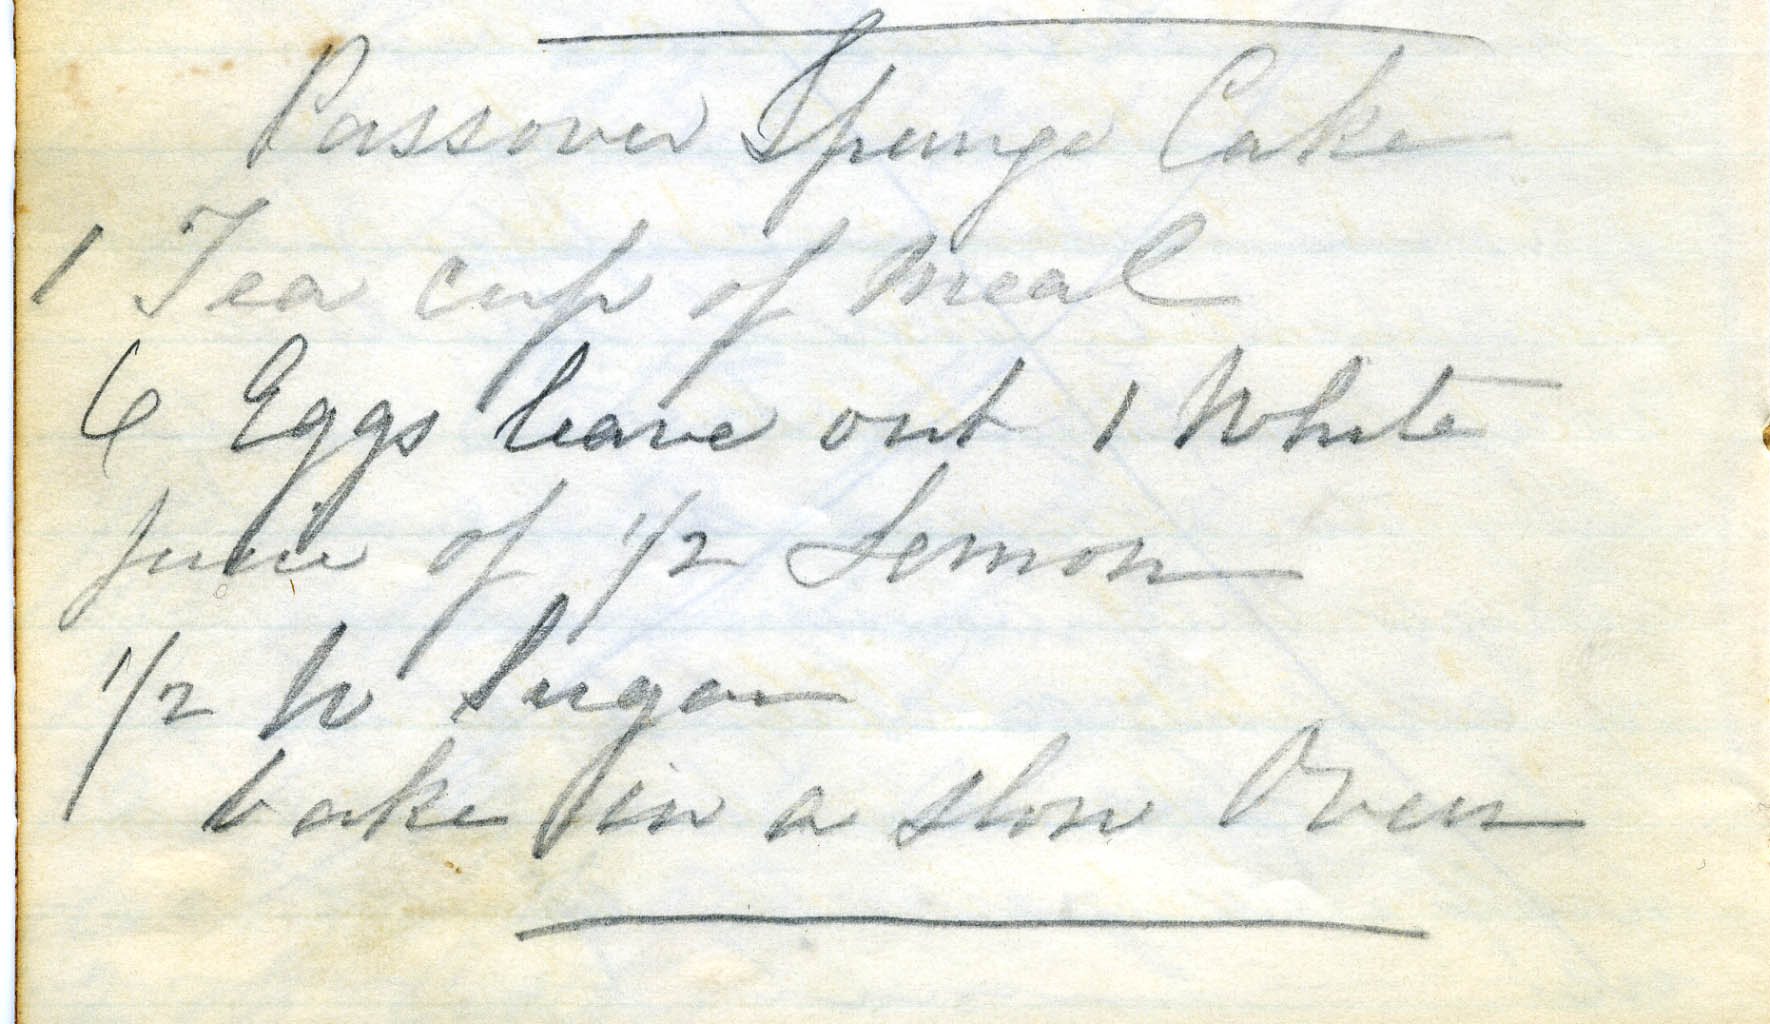 Passover Spunge Cake
1 Tea cup of meal
6 Eggs leave out 1 White
juice of 1/2 Lemon
1/2 lb Sugar
bake in a slow Oven